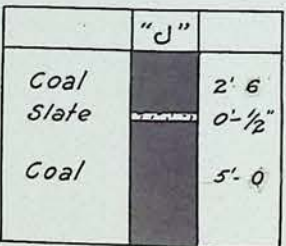 "J"
Coal 2' 6
Slate 0'-1/2"
Coal 5'- 0